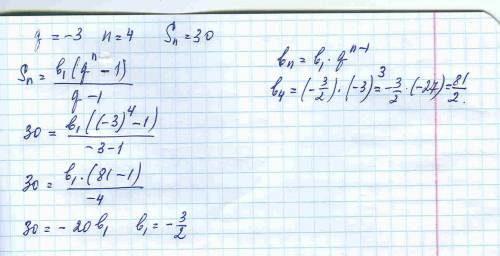 q = -3   n = 4   Sₙ = 30
Sₙ = b₁(qⁿ - 1) / (q - 1)
30 = b₁((-3)⁴ - 1) / (-3 - 1)
30 = b₁ · (81 - 1) / (-4)
30 = -20 b₁   b₁ = -3/2
bₙ = b₁ · qⁿ⁻¹
b₄ = (-3/2) · (-3)³ = -3/2 · (-27) = 81/2.